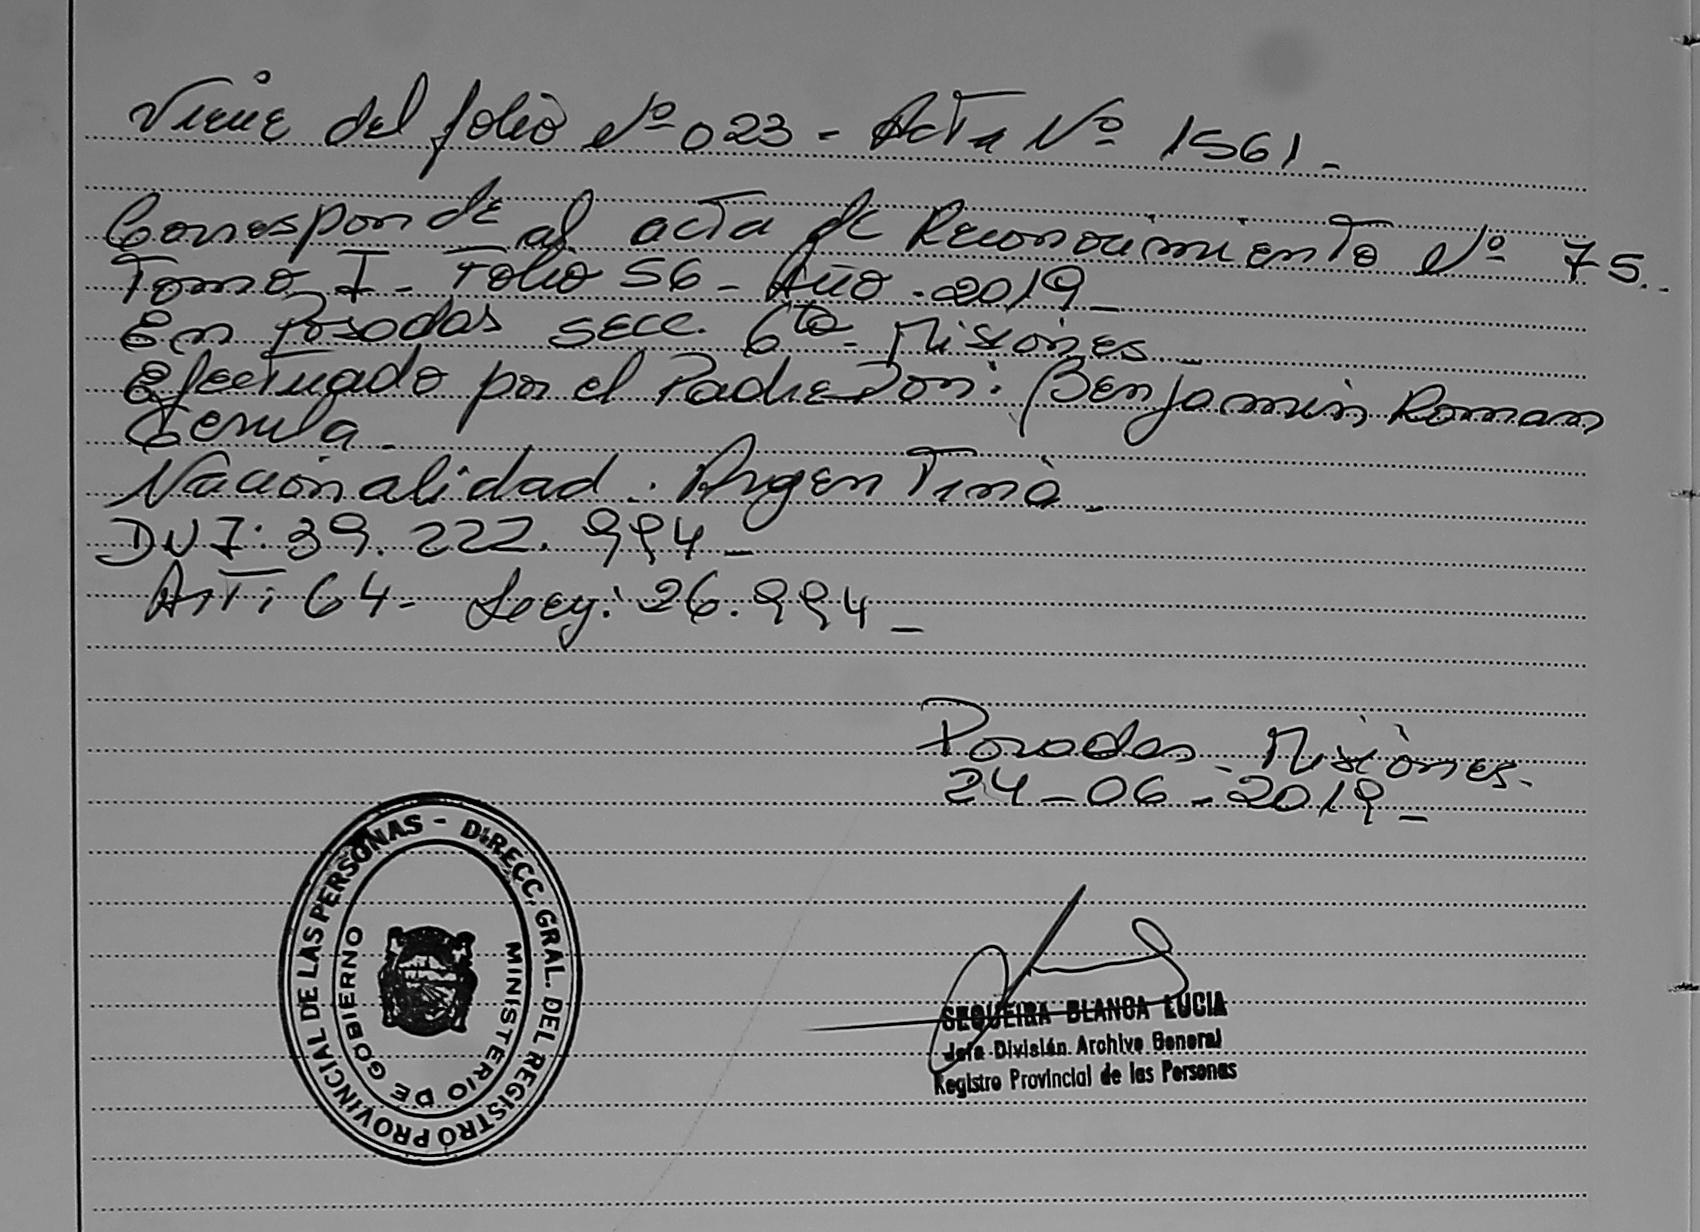 Viene del folio Nº 023 - Acta Nº 1561.-
Corresponde al acta de Reconocimiento Nº 75..
Tomo I - Folio 56 - Año . 2019 -
En Posadas secc. 6ta Misiones -
Efectuado por el Padre Don: Benjamin Roman
Cerula -
Nacionalidad . Argentina -
DNI: 39. 222. 994 -
Art: 64 - Ley: 26.994 -
Posadas Misiones.
24 - 06 - 2019 -
DIRECC. GRAL. DEL REGISTRO PROVINCIAL DE LAS PERSONAS -
MINISTERIO DE GOBIERNO
SEQUEIRA BLANCA LUCIA
Jefa División Archivo General
Registro Provincial de las Personas